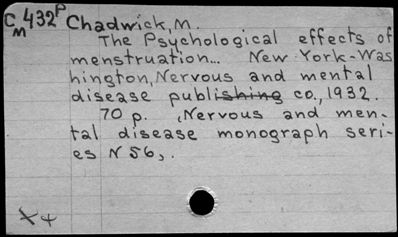 C432P Chadwick, M.
M
The Psychological effects of
menstruation... New-York-Was
hington, Nervous and mental
disease publishing co., 1932.
70 p. ,Nervous and men-
tal disease monograph seri-
es N 56,.
X 4